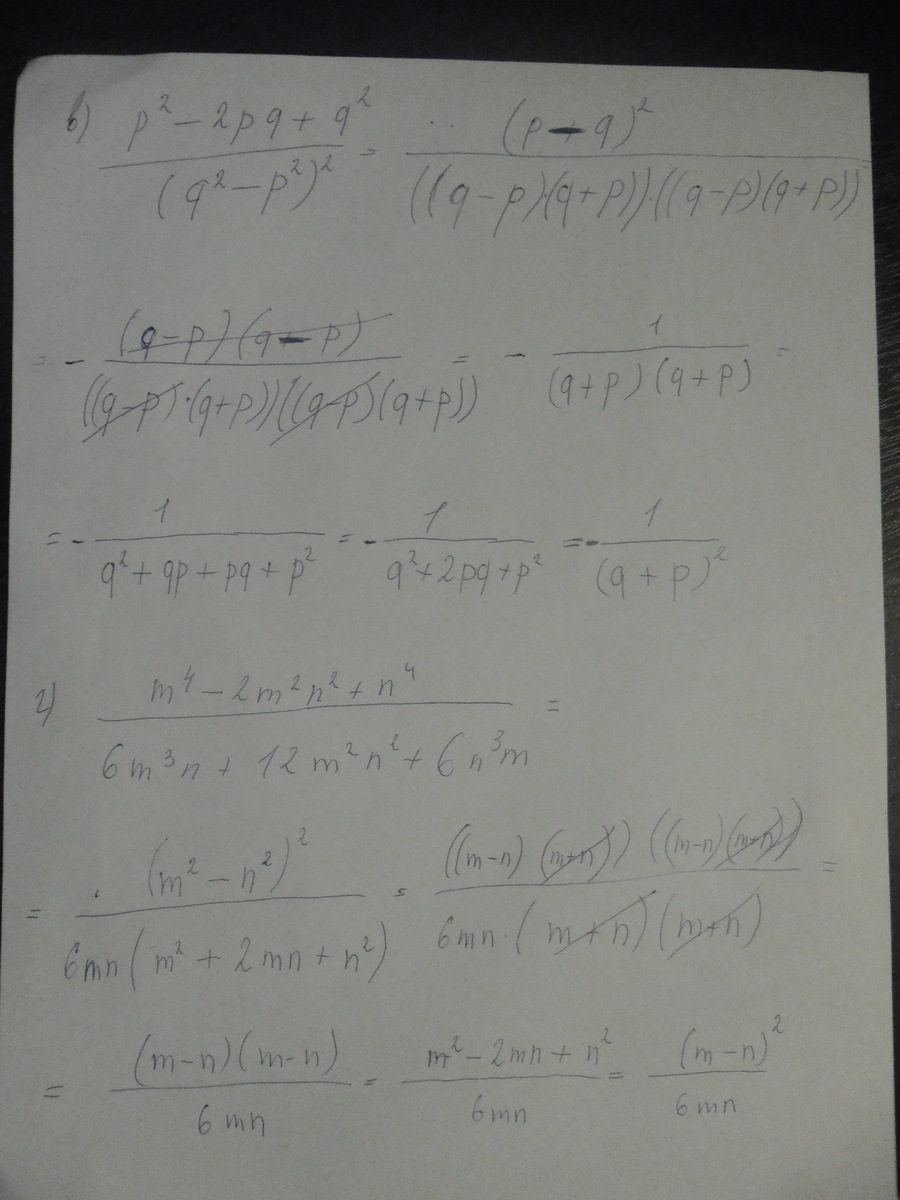 в) (p² - 2pq + q²)/(q² - p²)² = (p - q)²/(((q - p)·(q + p))·((q - p)(q + p))) =
= - ((q - p)(q - p))/(((q - p)·(q + p))((q - p)(q + p))) = - 1/((q + p)(q + p)) =
= - 1/(q² + qp + pq + p²) = - 1/(q² + 2pq + p²) = - 1/(q + p)²
г) (m⁴ - 2m²n² + n⁴)/(6m³n + 12m²n² + 6n³m) =
= (m² - n²)²/(6mn(m² + 2mn + n²)) = (((m-n)(m+n))((m-n)(m+n)))/(6mn·(m+n)(m+n)) =
= ((m-n)(m-n))/(6mn) = (m² - 2mn + n²)/(6mn) = (m-n)²/(6mn)